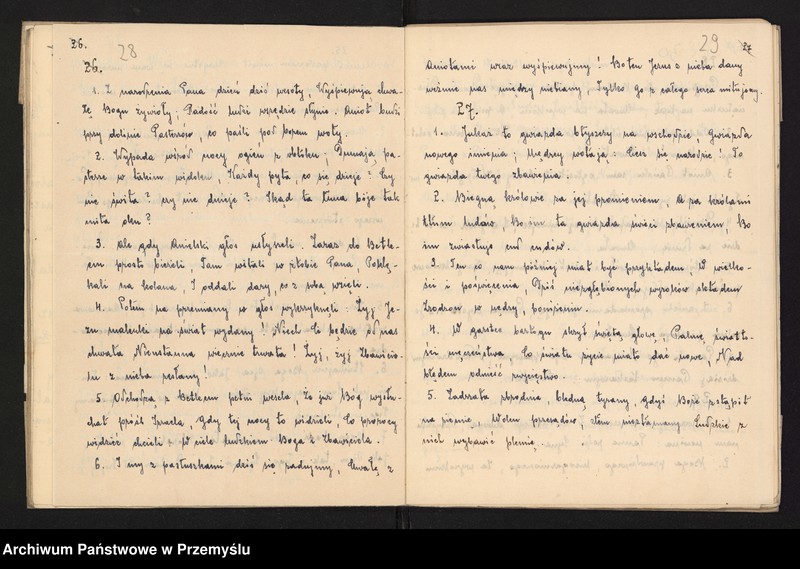 26.
28
26.
1. Z narodzenia Pana dzień dziś wesoły, Wyśpiewują chwa-
łę Bogu żywioły; Radość ludzi wszędzie słynie. Anioł budzi
przy dolinie Pasterzow, co paśli pod borem woły.
2. Wypada wśród nocy ogień z obłoku; Dumają pa-
sterze w takim widoku, Każdy pyta co się dzieje? Czy
nie świta? czy nie dnieje? Skąd ta łuna bije tak
miła oku?
3. Ale gdy Anielski głos usłyszeli. Zaraz do Betle-
em prosto bieżeli, Tam witali w żłobie Pana, Poklę-
kali na kolana, I oddali dary, co z sobą wzięli.
4. Potem na przemiany w głos wykrzyknęli: Żyj Je-
zu maleńki na świat wydany! Niech Ci będzie od nas
chwała Nieustanna wiecznie trwała! Żyj, żyj Zbawicie-
lu z nieba zesłany!
5. Odchodzą z Betleem pełni wesela, Że już Bóg wysłu-
chał próśb Izraela, Gdy tej nocy to widzieli, Co prorocy
widzieć chcieli: W ciele ludzkiem Boga i Zbawiciela.
6. I my z pastuszkami dziś się radujmy, Chwałę z
29
27
Aniołami wraz wyśpiewujmy! Bo ten Jezus z nieba dany
weźmie nas między niebiany. Tylko Go z całego serca miłujmy.
27.
1. Jakaż to gwiazda błyszczy na wschodzie, Gwiazda
nowego imienia; Mędrcy wołają: Ciesz się narodzie! To
gwiazda twego zbawienia.
2. Biegną królowie za jej promieniem, A za królami
tłum ludów, Bo im ta gwiazda świeci zbawieniem, Bo
im zwiastuje cud cudów.
3. Ten co nam później miał być przykładem, W wielko-
ści i poświęcenia, Dziś niezgłębionych wyroków śladem
Zrodzon w nędzy, poniżeniu.
4. W garstce barłogu skrył świętą głowę, Palmę światło-
ści męczeństwa, Co światu życie miała dać nowe, Nad
błędem odnieść zwycięstwo.
5. Zadrżała zbrodnia, bledną tyrany, Gdyś Boże zstąpił
na ziemię, Wolen przesądów, złem niezłamany Ludzkie z
nich wybawić plemię.
Archiwum Państwowe w Przemyślu